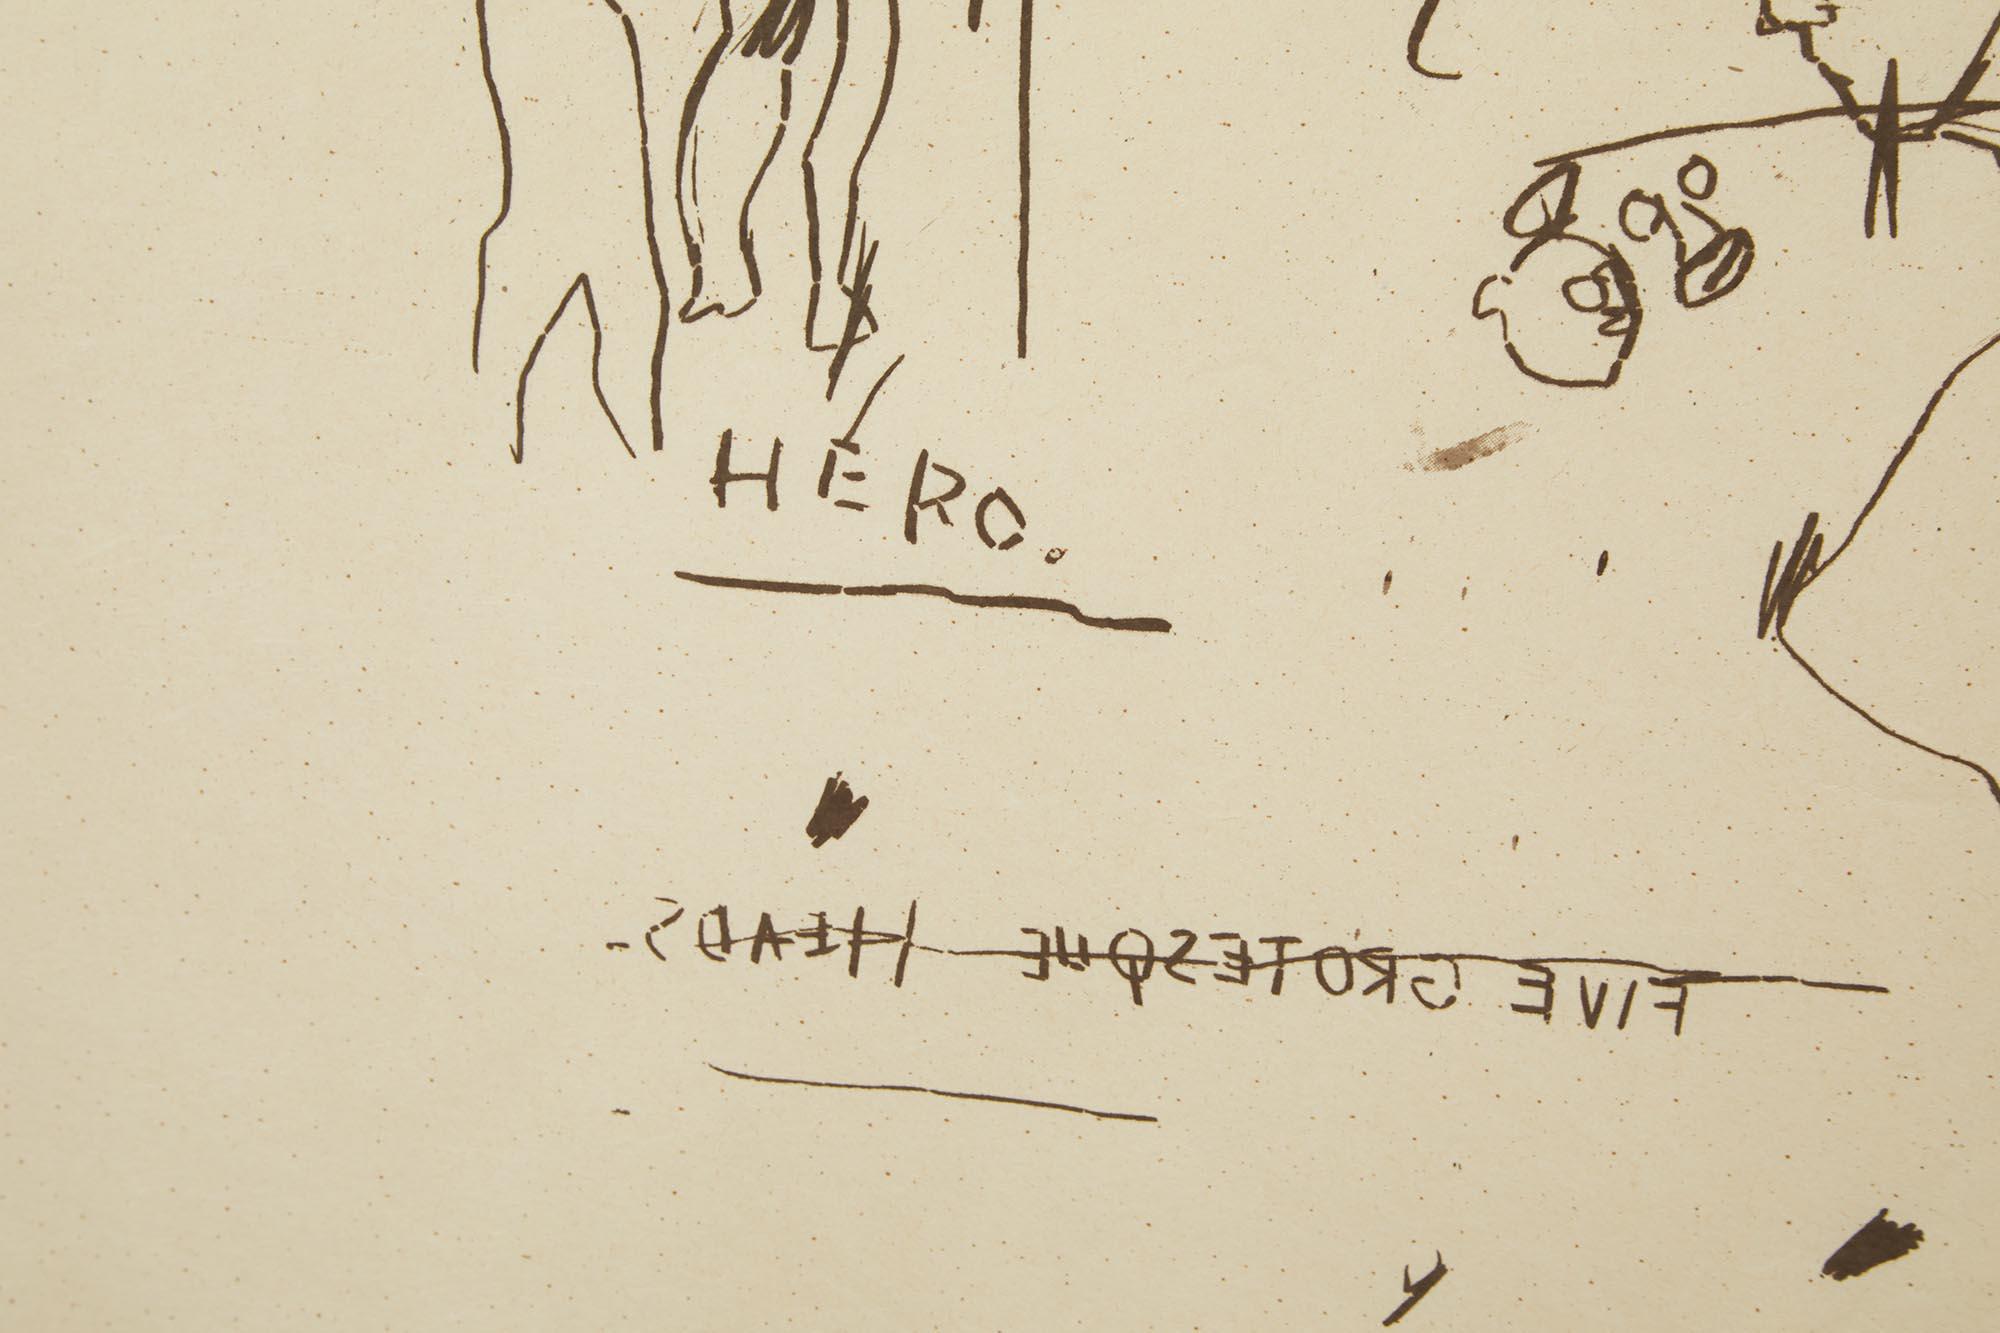 HERO.
FIVE GROTESQUE HEADS-